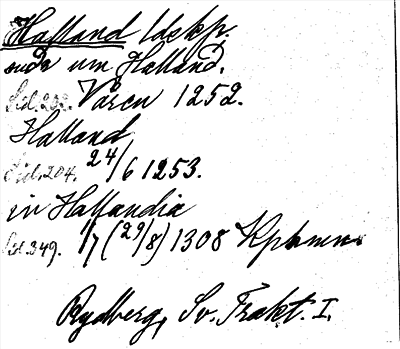 Halland ldskp.
sudr um Halland.
Sid. 202. Våren 1252.
Halland
Sid. 204. 24/6 1253.
in Hallandia
Sid. 349. 1/7 (29/8) 1308 Kphamn.
Rydberg, Sv. Trakt. I.